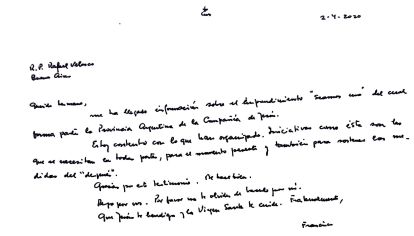 2-4-2020
R.P. Rafael Velasco
Buenos Aires
Querido hermano,
me ha llegado información sobre el Emprendimiento "Seamos uno" del cual
forma parte la Provincia Argentina de la Compañía de Jesús.
Estoy contento con lo que han organizado. Iniciativas como ésta son las
que se necesitan en todas partes, para el momento presente y también para sostener las me-
didas del "después".
Gracias por el testimonio. Me hace bien.
Rezo por vos. Por favor no te olvides de hacerlo por mí.
Que Jesús te bendiga y la Virgen Santa te cuide. Fraternalmente,
Francisco